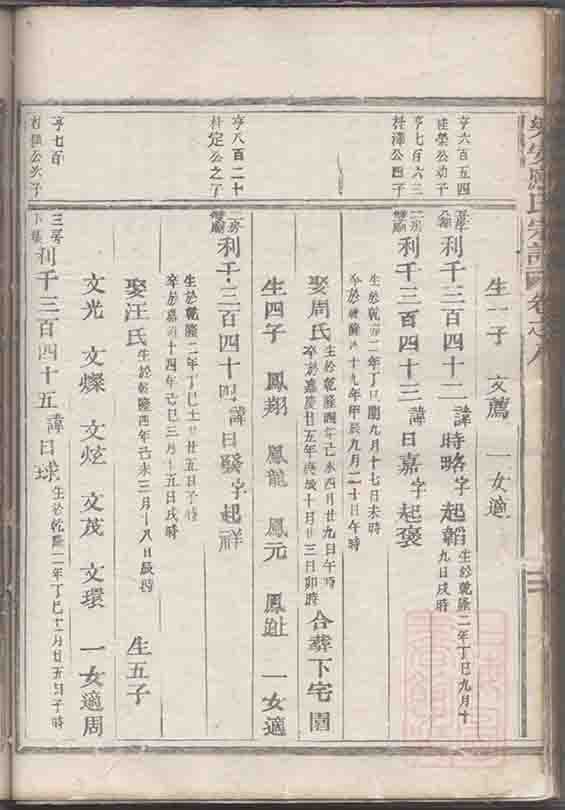 樂安 氏宗譜 卷之八
生一子 文薦 一女適
亨六百五四
桂榮公幼子
利千三百四十二諱時略字起韜 生於乾隆二年丁巳九月十
九日戌時
亨七百六三
桂澤公四子
二房
利千三百四十三諱日嘉字起褒
生於乾隆二年丁巳閏九月十七日未時
卒於乾隆四十九年甲辰九月二十日午時
娶周氏 生於乾隆四年己未四月廿九日午時
卒於嘉慶廿五年庚辰十月廿三日卯時 合葬下宅園
生四子 鳳翔 鳳龍 鳳元 鳳趾 一女適
亨八百二十
桂定公之子
二房
利千三百四十四諱日 字起祥
生於乾隆二年丁巳 廿五日子時
卒於嘉慶十四年己巳三月十五日戌時
娶汪氏 生於乾隆四年己未三月十八日辰時 生五子
文光 文燦 文炫 文茂 文環 一女適周
亨七百
公次子
三房
下集
利千三百四十五諱日球 生於乾隆二年丁巳十一月廿五日子時